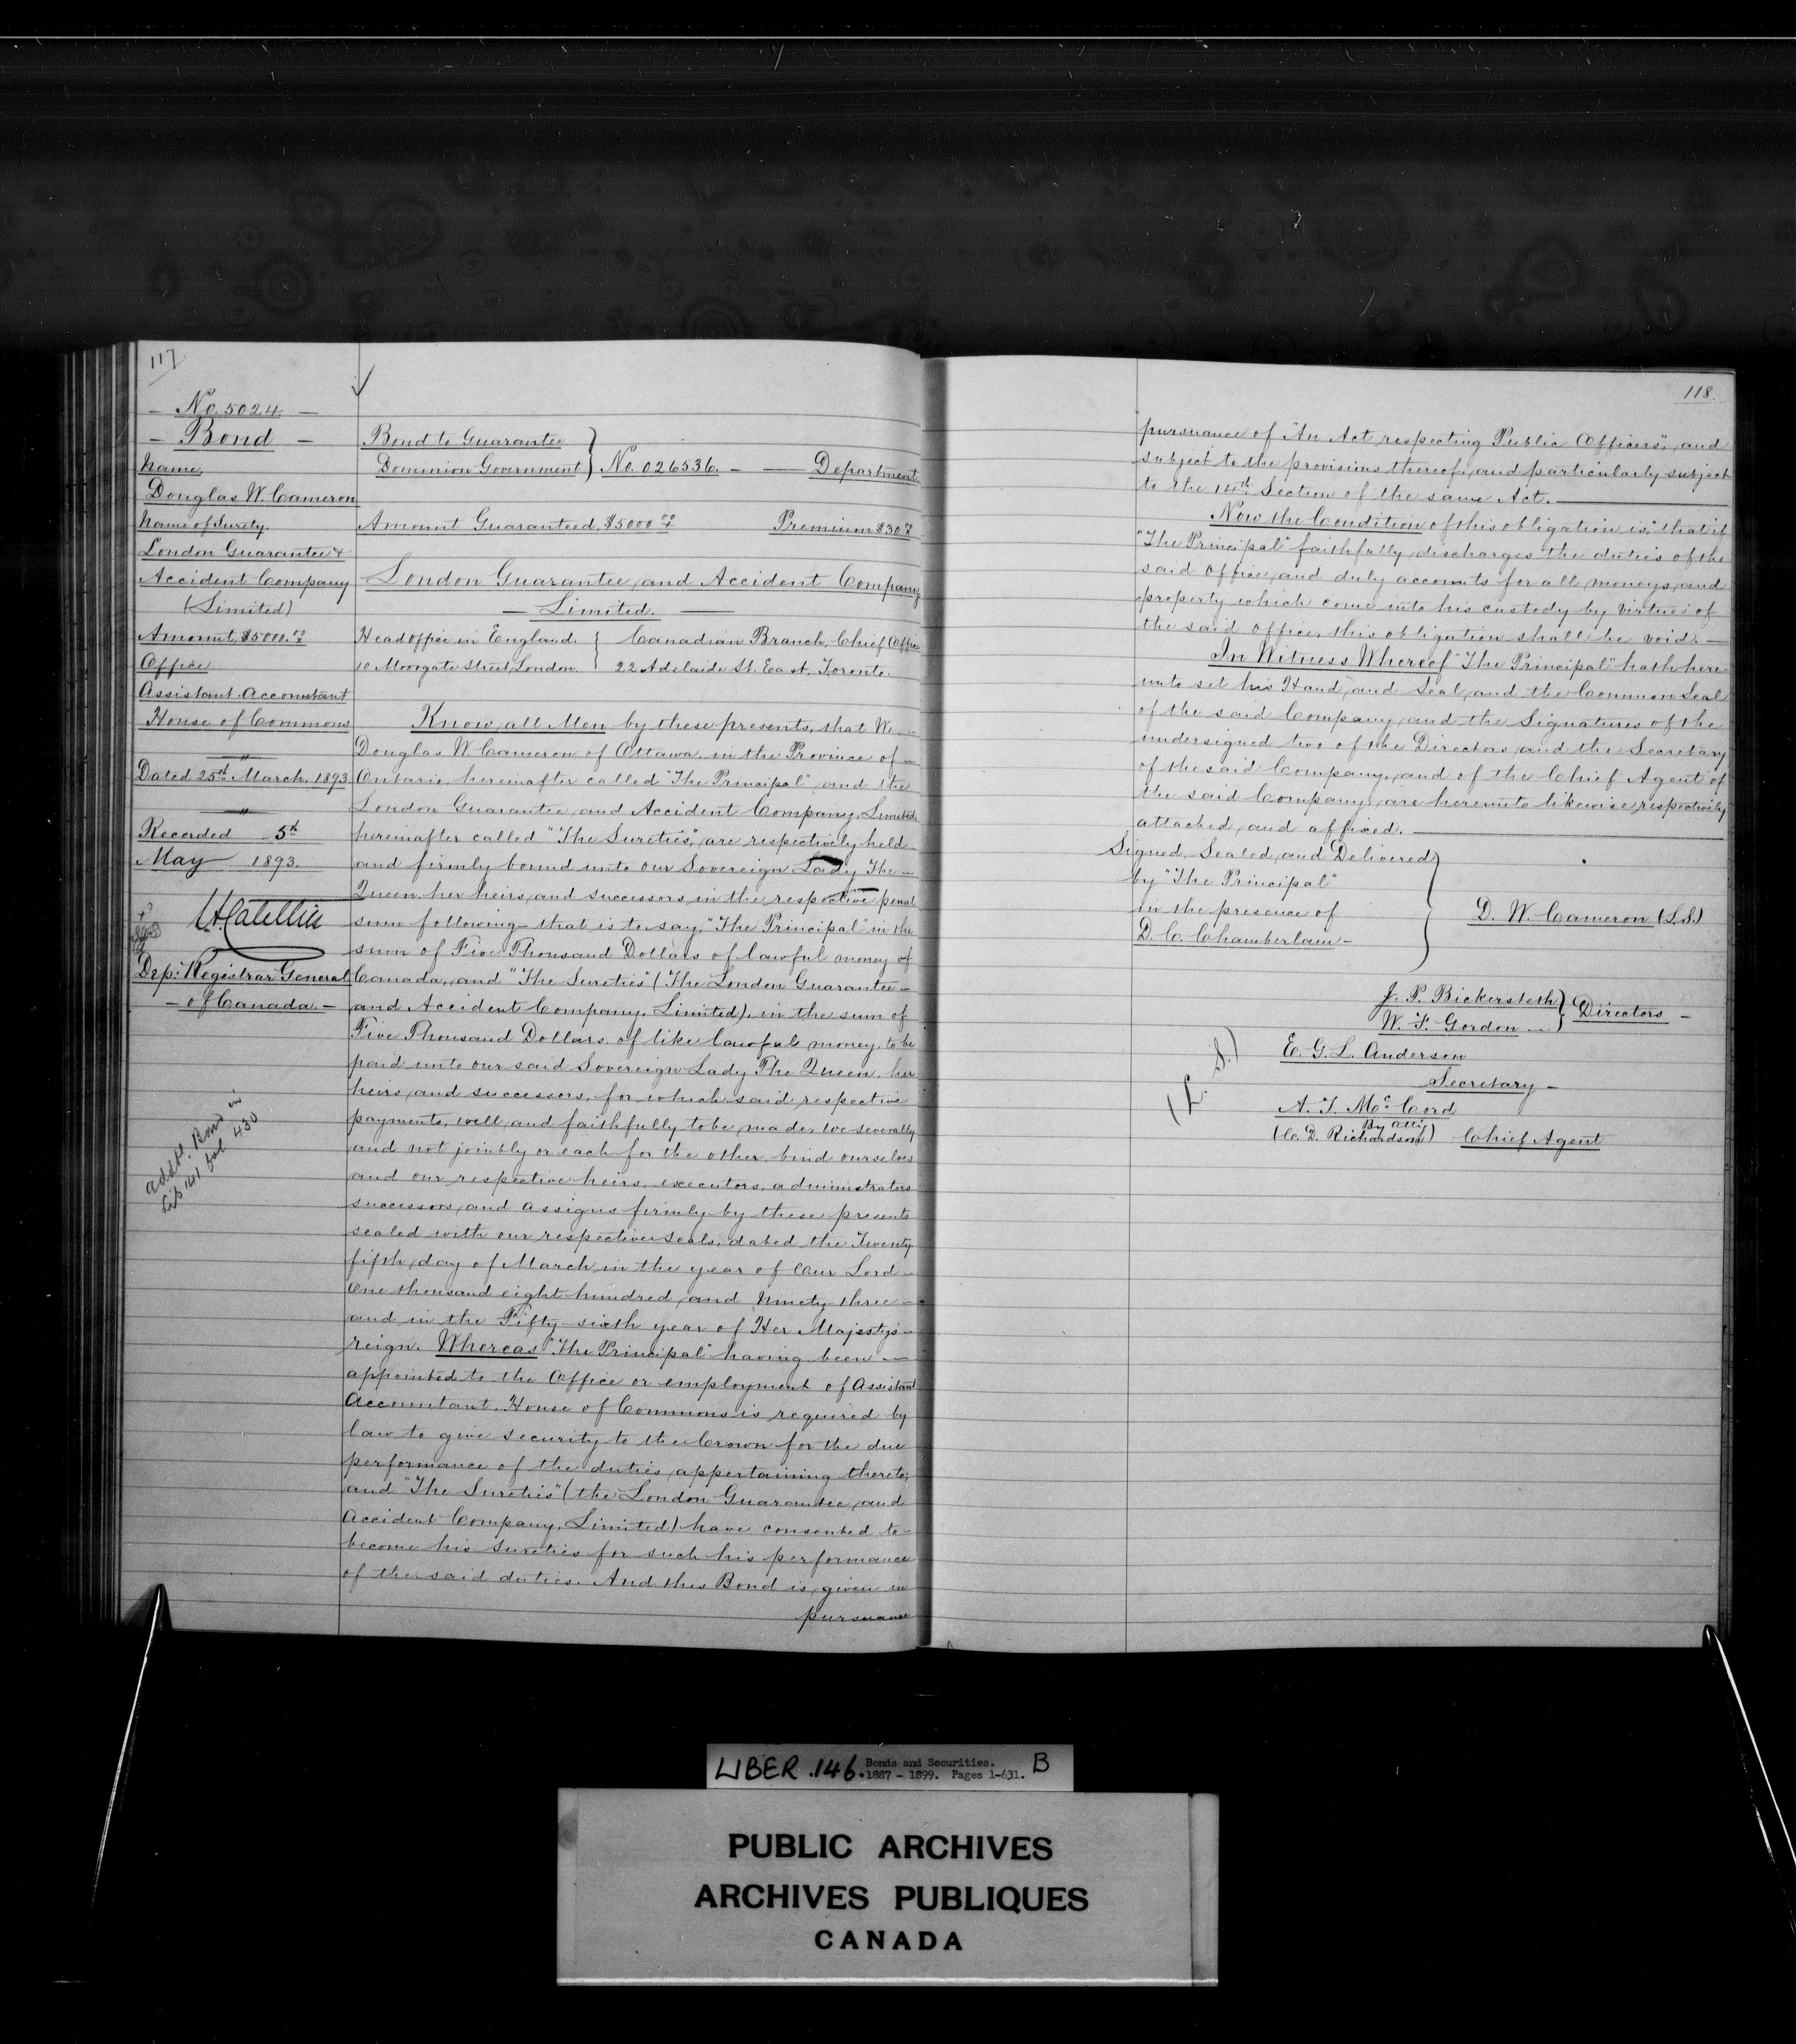 117
— No. 5024 —
— Bond —
Name,
Douglas W. Cameron
Name of Surety.
London Guarantee &
Accident Company
(Limited)
Amount, $5000.00
Office
Assistant Accountant
House of Commons
"
Dated 25th March, 1893
"
Recorded 5th
May 1893.
Dep: Registrar General
— of Canada. —
Addtl. Bond in
Lib 141 fol 430
Bond to Guarantee
Dominion Government } No. 026536. — — Department
Amount Guaranteed, $5000.00 Premium $30.00
London Guarantee and Accident Company
— Limited. —
Head office in England. { Canadian Branch, Chief Office
10 Moorgate Street, London. { 22 Adelaide St. East, Toronto.
Know all Men by these presents, that We, —
Douglas W Cameron of Ottawa in the Province of —
Ontario hereinafter called "The Principal" and the
London Guarantee and Accident Company, Limited
hereinafter called "The Sureties", are respectively held
and firmly bound unto our Sovereign Lady The —
Queen, her heirs and successors in the respective penal
sum following — that is to say, "The Principal" in the
sum of Five Thousand Dollars of lawful money of
Canada, and "The Sureties" (The London Guarantee —
and Accident Company, Limited), in the sum of
Five Thousand Dollars of like lawful money, to be
paid unto our said Sovereign Lady The Queen, her
heirs and successors, for which said respective
payments, well and faithfully to be made, we severally
and not jointly or each for the other, bind ourselves
and our respective heirs, executors, administrators
successors and assigns firmly by these presents
sealed with our respective seals, dated the Twenty
fifth day of March in the year of Our Lord —
One thousand eight hundred and Ninety three —
and in the Fifty-sixth year of Her Majesty's —
reign. Whereas "The Principal" having been —
appointed to the Office or employment of Assistant
Accountant, House of Commons is required by
law to give security to the Crown for the due
performance of the duties appertaining thereto;
and "The Sureties" (the London Guarantee and
Accident Company, Limited) have consented to —
become his Sureties for such his performance
of the said duties. And this Bond is given in
pursuance
118.
pursuance of "An Act respecting Public Officers", and
subject to the provisions thereof, and particularly subject
to the 14th Section of the same Act. —
Now the Condition of this obligation is, that if
"The Principal" faithfully discharges the duties of the
said office, and duly accounts for all moneys and
property which come into his custody by virtue of
the said office, this obligation shall be void. —
In Witness Whereof "The Principal" hath here
unto set his Hand and Seal, and the Common Seal
of the said Company, and the Signatures of the
undersigned two of the Directors and the Secretary
of the said Company, and of the Chief Agent of
the said Company, are hereunto likewise respectively
attached and affixed. —
Signed, Sealed and Delivered }
by "The Principal"
in the presence of
D. W. Cameron (L.S.)
D. C. Chamberlain —
J. P. Bickersteth }
W. F. Gordon — } Directors —
(L. S.)
E. G. L. Anderson
Secretary —
A. T. McCord
By Atty
(C. D. Richardson) Chief Agent
LIBER .146. Bonds and Securities. B
1887 - 1899. Pages 1-631.
PUBLIC ARCHIVES
ARCHIVES PUBLIQUES
CANADA